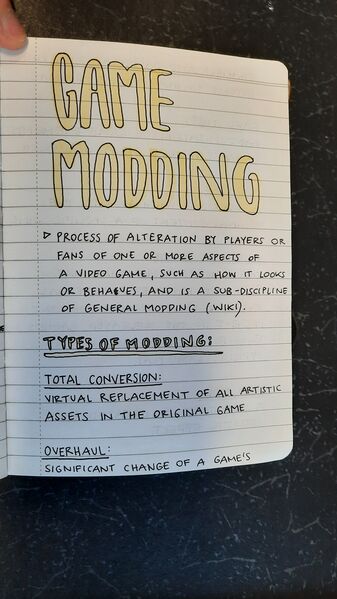 GAME
MODDING
▷ PROCESS OF ALTERATION BY PLAYERS OR
FANS OF ONE OR MORE ASPECTS OF
A VIDEO GAME, SUCH AS HOW IT LOOKS
OR BEHAVES, AND IS A SUB-DISCIPLINE
OF GENERAL MODDING (WIKI).
TYPES OF MODDING:
TOTAL CONVERSION:
VIRTUAL REPLACEMENT OF ALL ARTISTIC
ASSETS IN THE ORIGINAL GAME
OVERHAUL:
SIGNIFICANT CHANGE OF A GAME'S